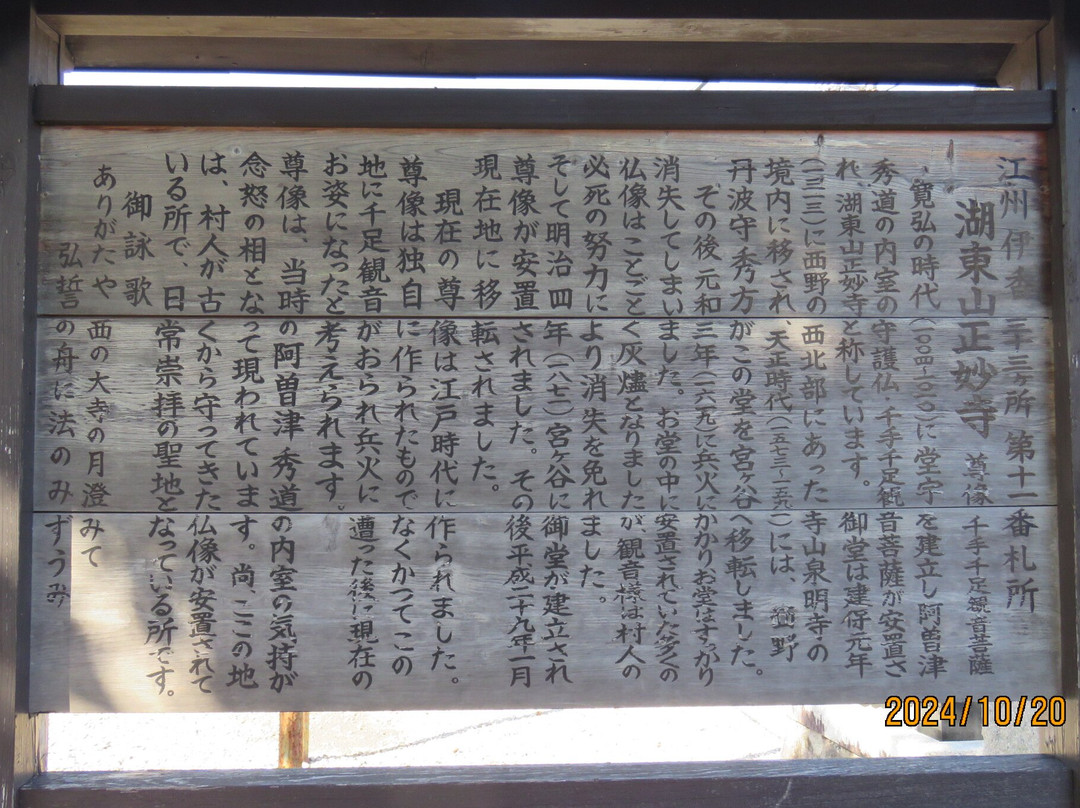 江州伊香三十三ヶ所 第十一番札所
湖東山正妙寺
尊像 千手千足観音菩薩
寛弘の時代(一〇〇四~一〇一二)に堂守を建立し阿曽津
秀道の内室の守護仏・千手千足観音菩薩が安置さ
れ、湖東山正妙寺と称しています。御堂は建保元年
(一二一三)に西野の西北部にあった寺山泉明寺の
境内に移され、天正時代(一五七三~一五九一)には、野
丹波守秀方がこの堂を宮ヶ谷へ移転しました。
その後元和三年(一六一九)に兵火にかかりお堂はすっかり
消失してしまいました。お堂の中に安置されていた多くの
仏像はことごとく灰燼となりましたが観音様は村人の
必死の努力により消失を免れました。
そして明治四年(一八七一)宮ヶ谷に御堂が建立され
尊像が安置されました。その後平成二十九年一月
現在地に移転されました。
現在の尊像は江戸時代に作られました。
尊像は独自に作られたものでなくかつてこの
地に千足観音がおられ兵火に遭った後に現在の
お姿になったと考えられます。
尊像は、当時の阿曽津秀道の内室の気持が
念怒の相となって現われています。尚、ここの地
は、村人が古くから守ってきた仏像が安置されて
いる所で、日常崇拝の聖地となっている所です。
御詠歌
ありがたや 西の大寺の月澄みて
弘誓の舟に法のみずうみ
2024/10/20